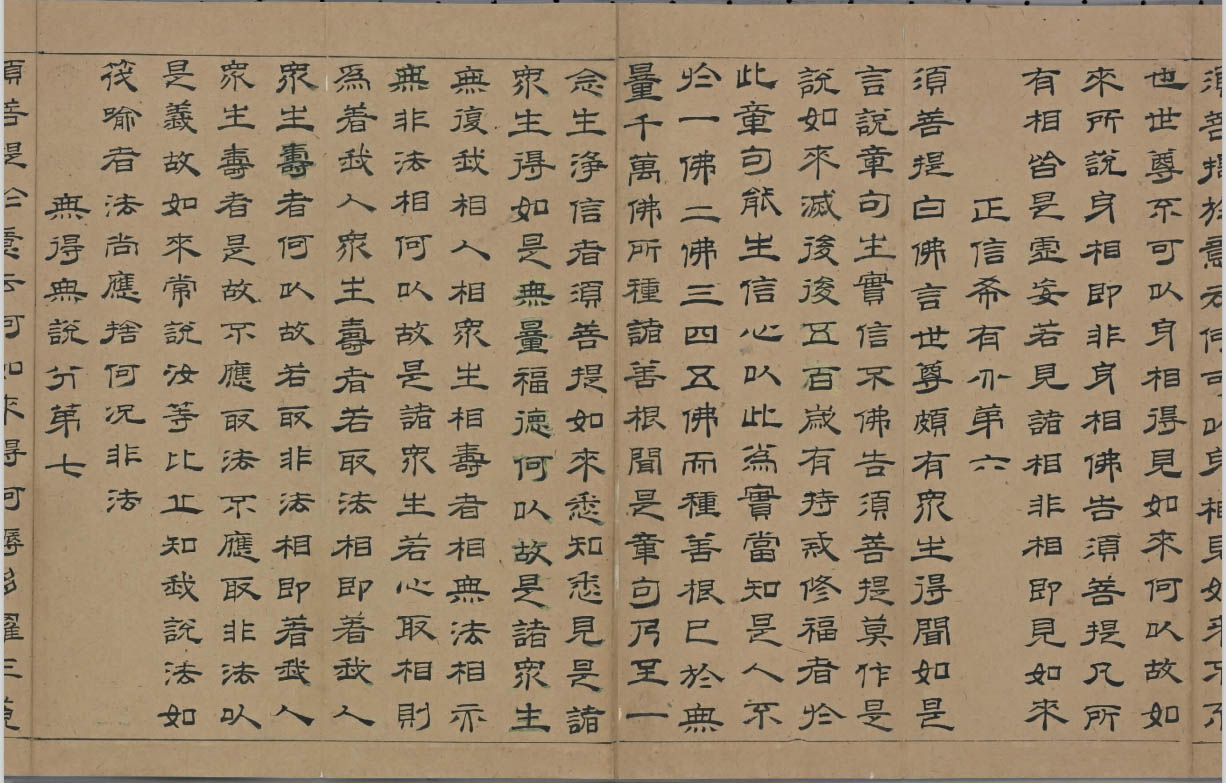 須菩提於意云何可以身相見如來不不
也世尊不可以身相得見如來何以故如
來所說身相即非身相佛告須菩提凡所
有相皆是虛妄若見諸相非相即見如來
正信希有分第六
須菩提白佛言世尊頗有衆生得聞如是
言說章句生實信不佛告須菩提莫作是
說如來滅後後五百歲有持戒修福者於
此章句能生信心以此為實當知是人不
於一佛二佛三四五佛而種善根已於無
量千萬佛所種諸善根聞是章句乃至一
念生淨信者須菩提如來悉知悉見是諸
衆生得如是無量福德何以故是諸衆生
無復我相人相衆生相壽者相無法相亦
無非法相何以故是諸衆生若心取相則
為着我人衆生壽者若取法相即着我人
衆生壽者何以故若取非法相即着我人
衆生壽者是故不應取法不應取非法以
是義故如來常說汝等比丘知我說法如
筏喻者法尚應捨何况非法
無得無說分第七
須菩提於意云何如來得阿耨多羅三藐